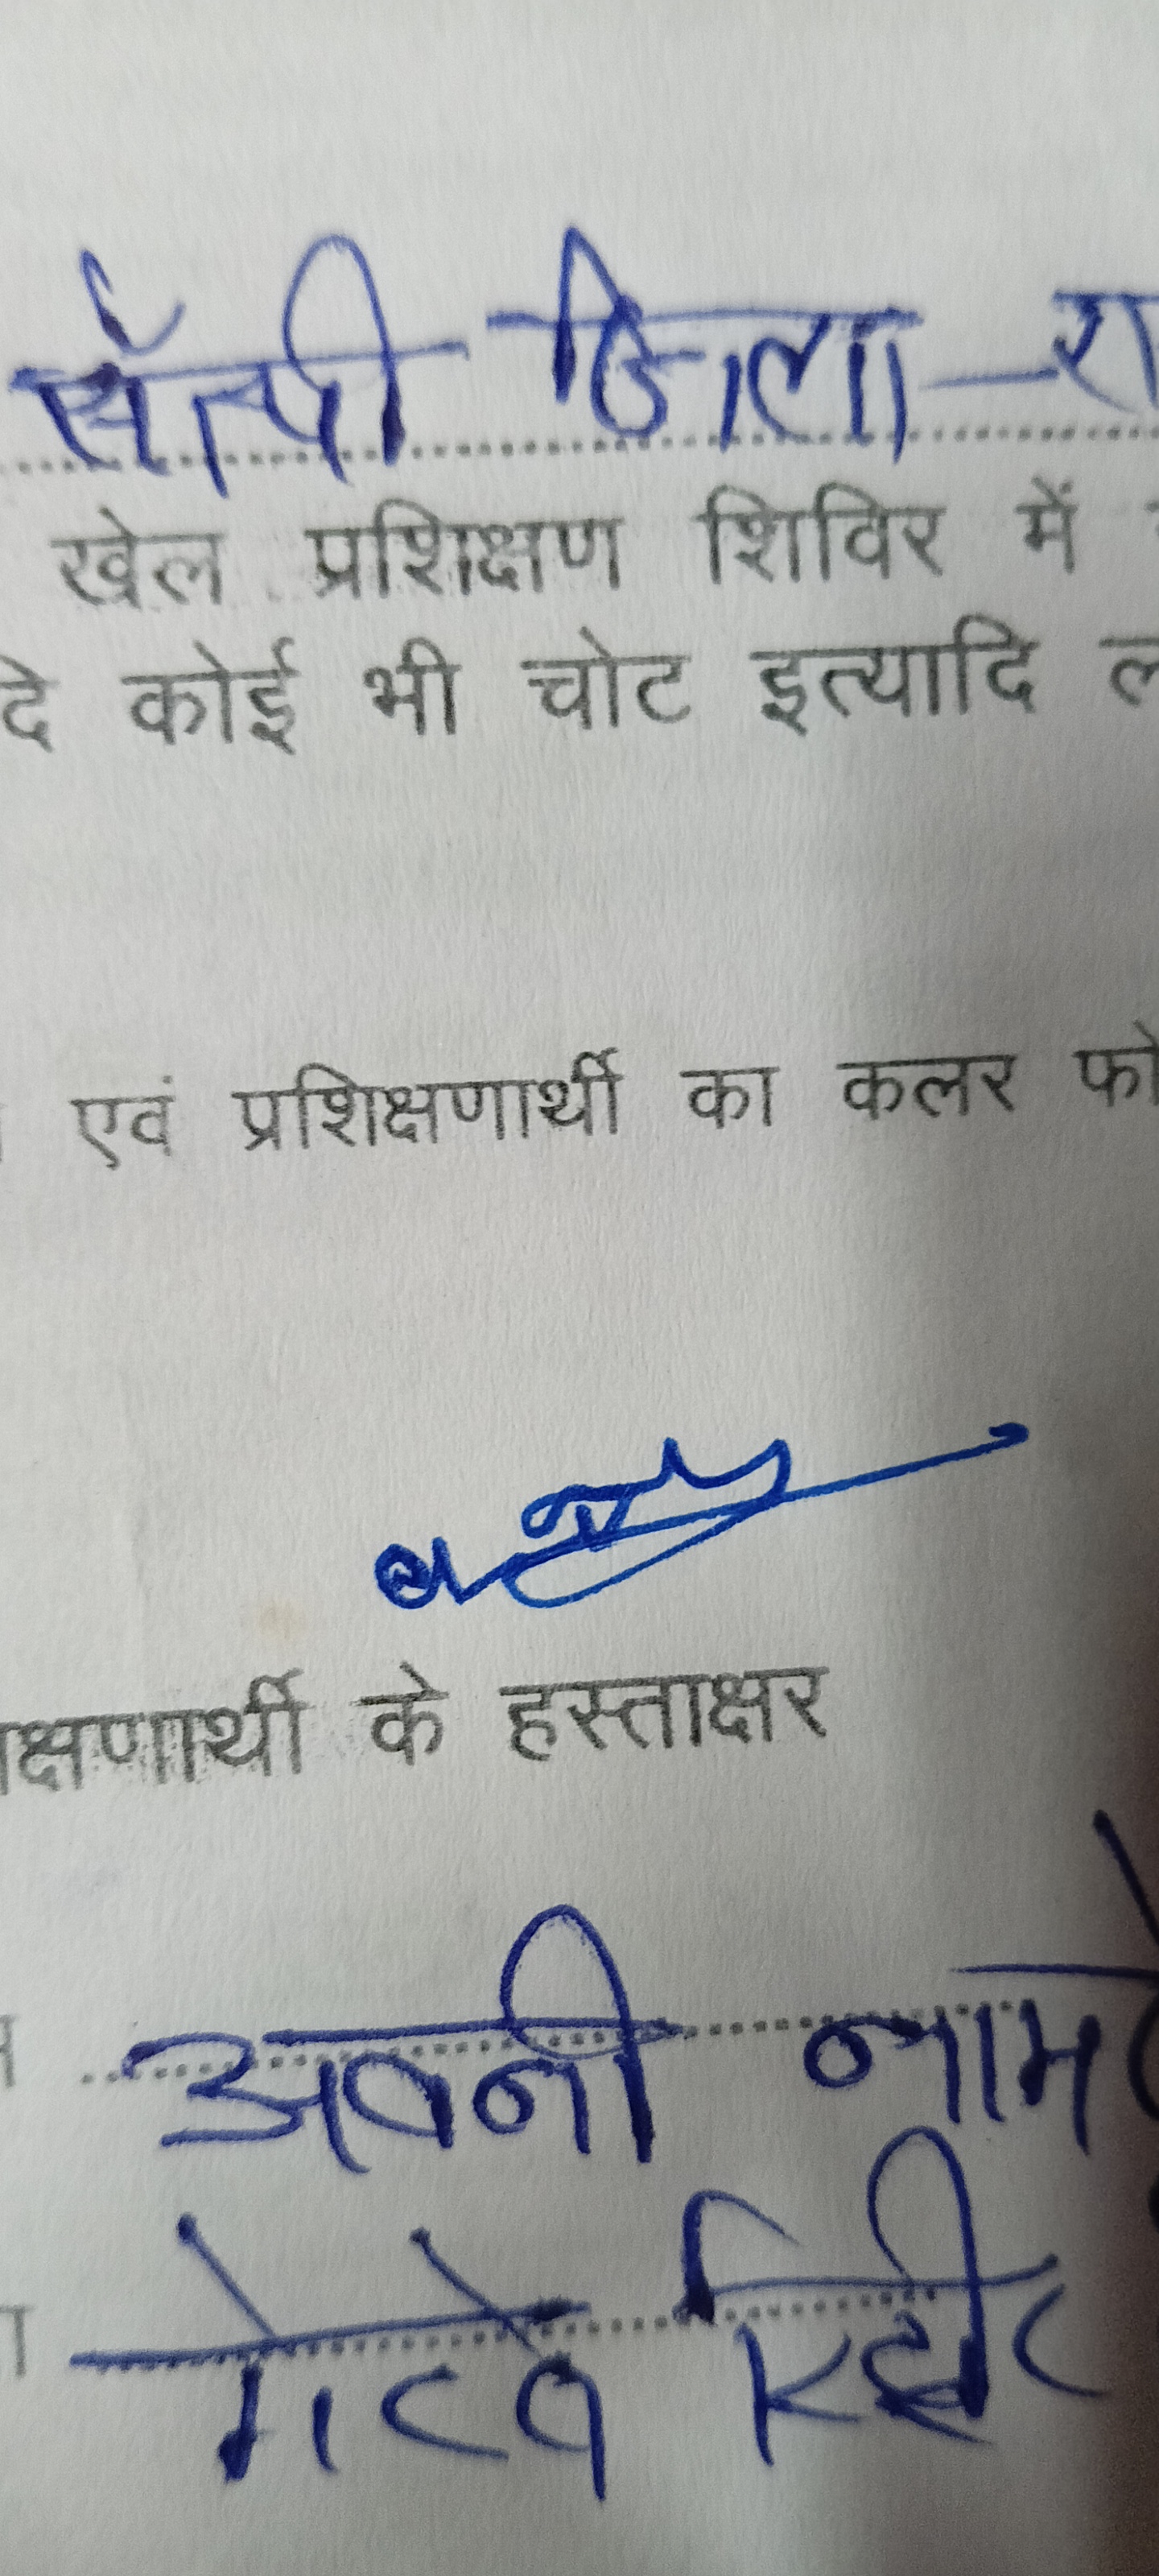 सॉची जिला-रा
खेल प्रशिक्षण शिविर में
दि कोई भी चोट इत्यादि ल
एवं प्रशिक्षणार्थी का कलर फो
क्षणार्थी के हस्ताक्षर
अवनी नामदे
गेटवे रिट्रीट